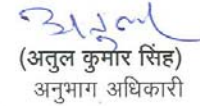 अतुल
(अतुल कुमार सिंह)
अनुभाग अधिकारी